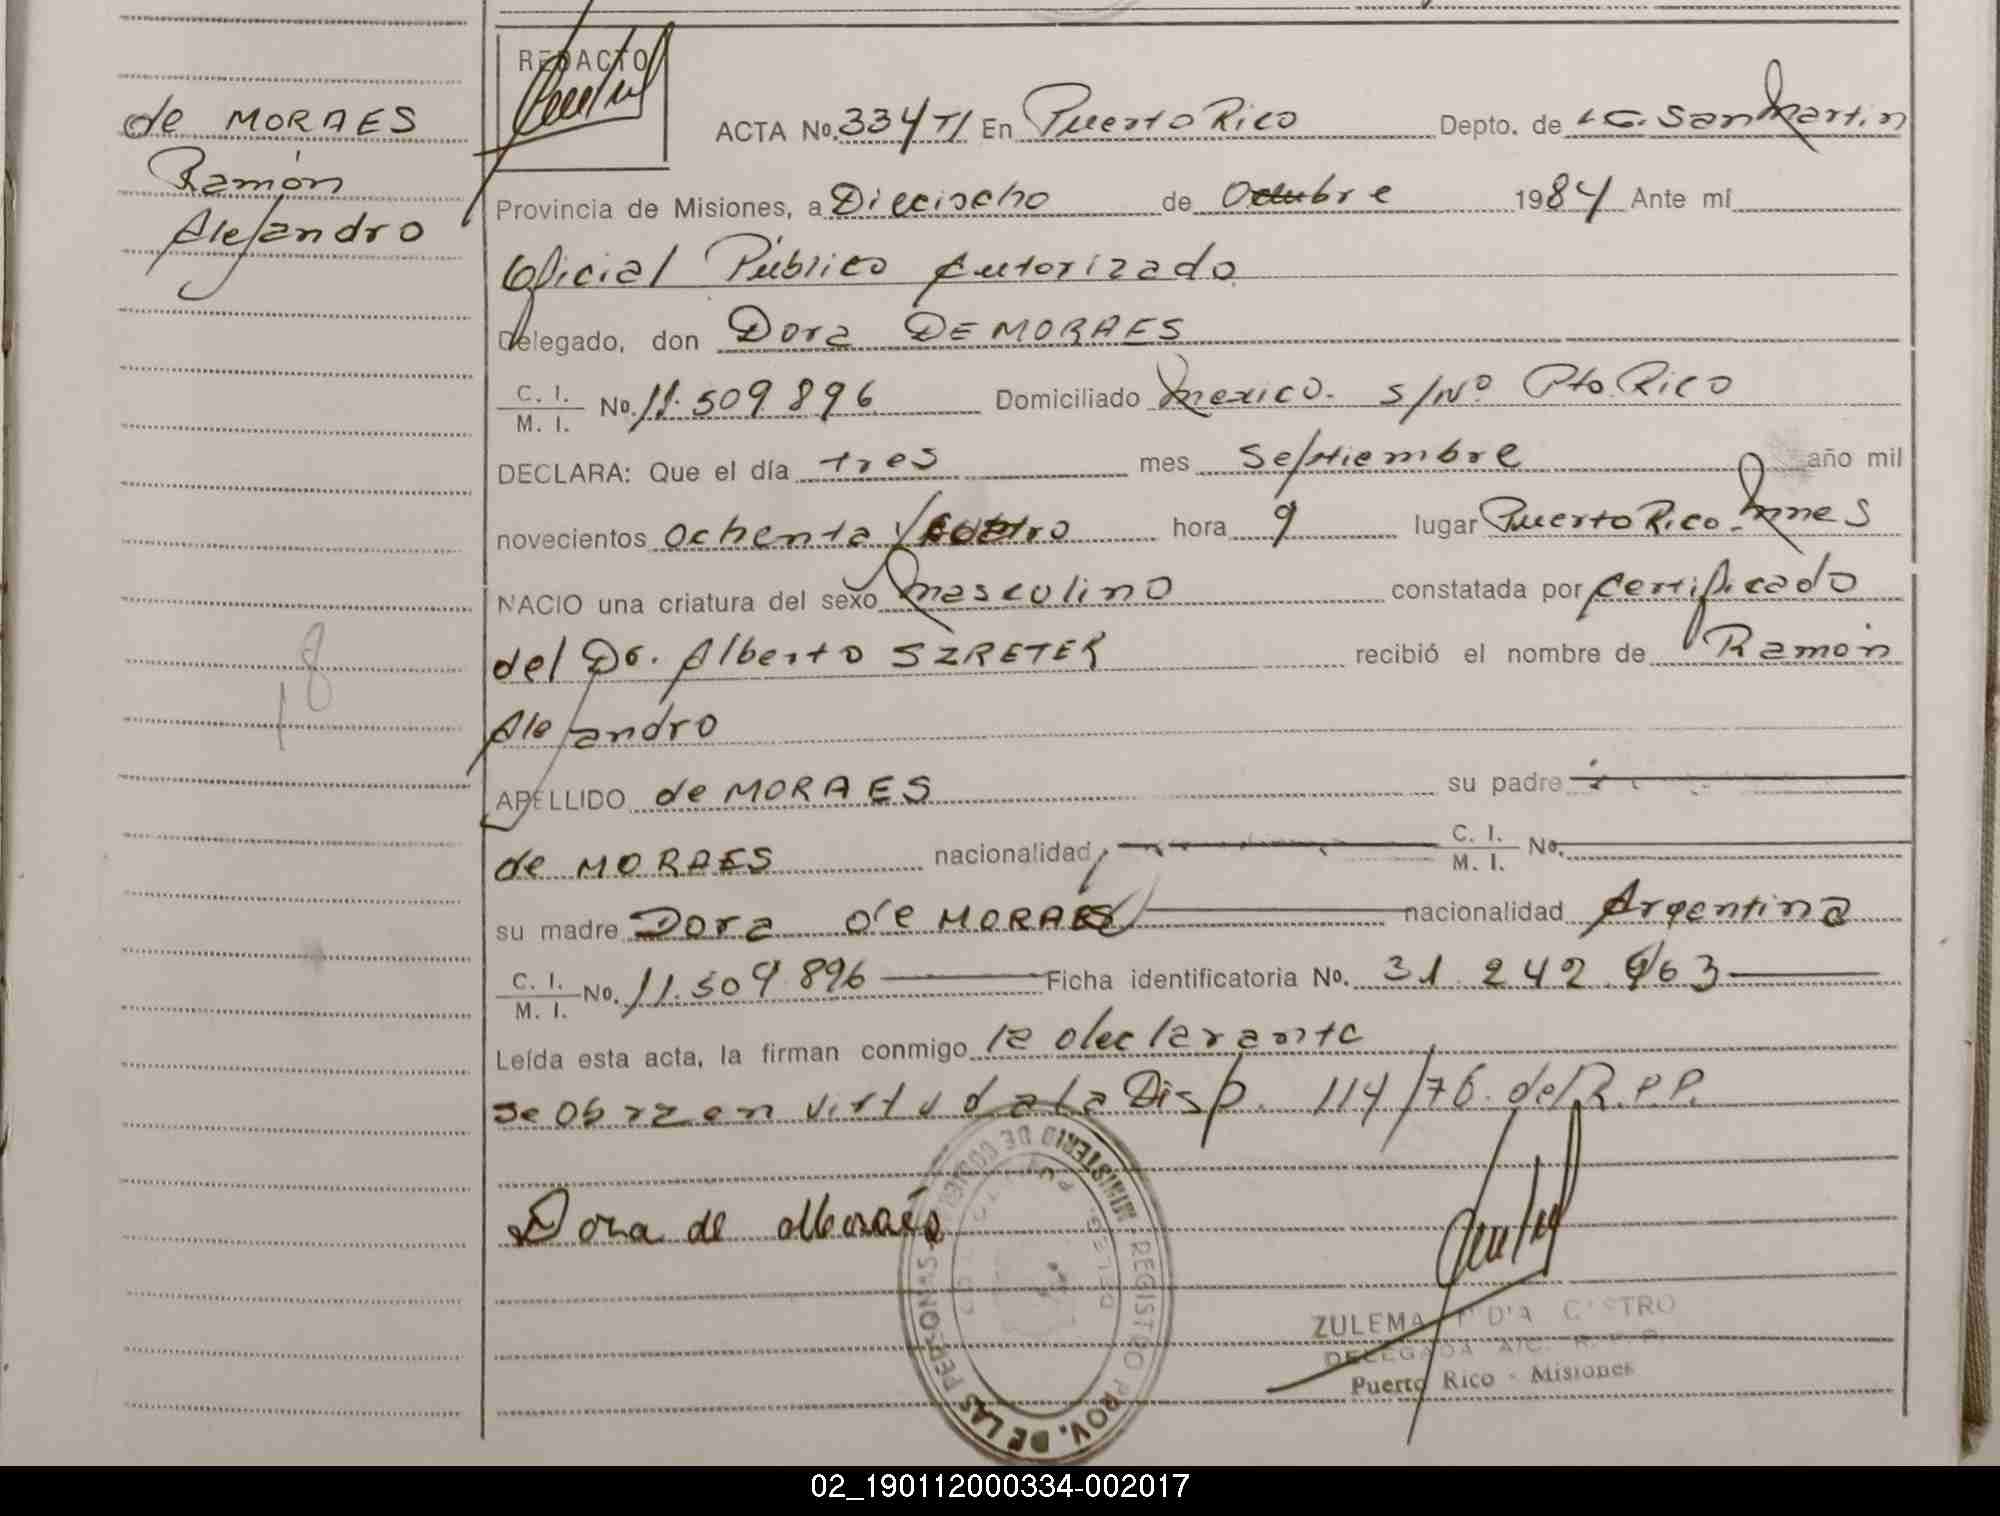 REDACTO
de MORAES
Ramón
Alejandro
ACTA No. 334 TI En Puerto Rico Depto. de L.G. San Martin
Provincia de Misiones, a Dieciocho de Octubre 1984 Ante mí
Oficial Público Autorizado
Delegado, don Dora DE MORAES
C. I. / M. I. No. 11.509.896 Domiciliado Mexico. s/Nº Pto. Rico
DECLARA: Que el día tres mes Septiembre año mil
novecientos ochenta y cuatro hora 9 lugar Puerto Rico. Mnes
NACIO una criatura del sexo masculino constatada por certificado
del Dr. Alberto SZRETER recibió el nombre de Ramón
Alejandro
APELLIDO de MORAES su padre
de MORAES nacionalidad C. I. / M. I. No.
su madre Dora de MORAES nacionalidad Argentina
C. I. / M. I. No. 11.509.896 Ficha identificatoria No. 31.242.963
Leída esta acta, la firman conmigo la declarante
se obra en virtud a la Disp. 114/76. del R.P.P.
Dora de Moraes
MINISTERIO DE REGISTRO PROV. DE LAS PERSONAS
ZULEMA CASTRO
DELEGADA
Puerto Rico - Misiones
18
02_190112000334-002017